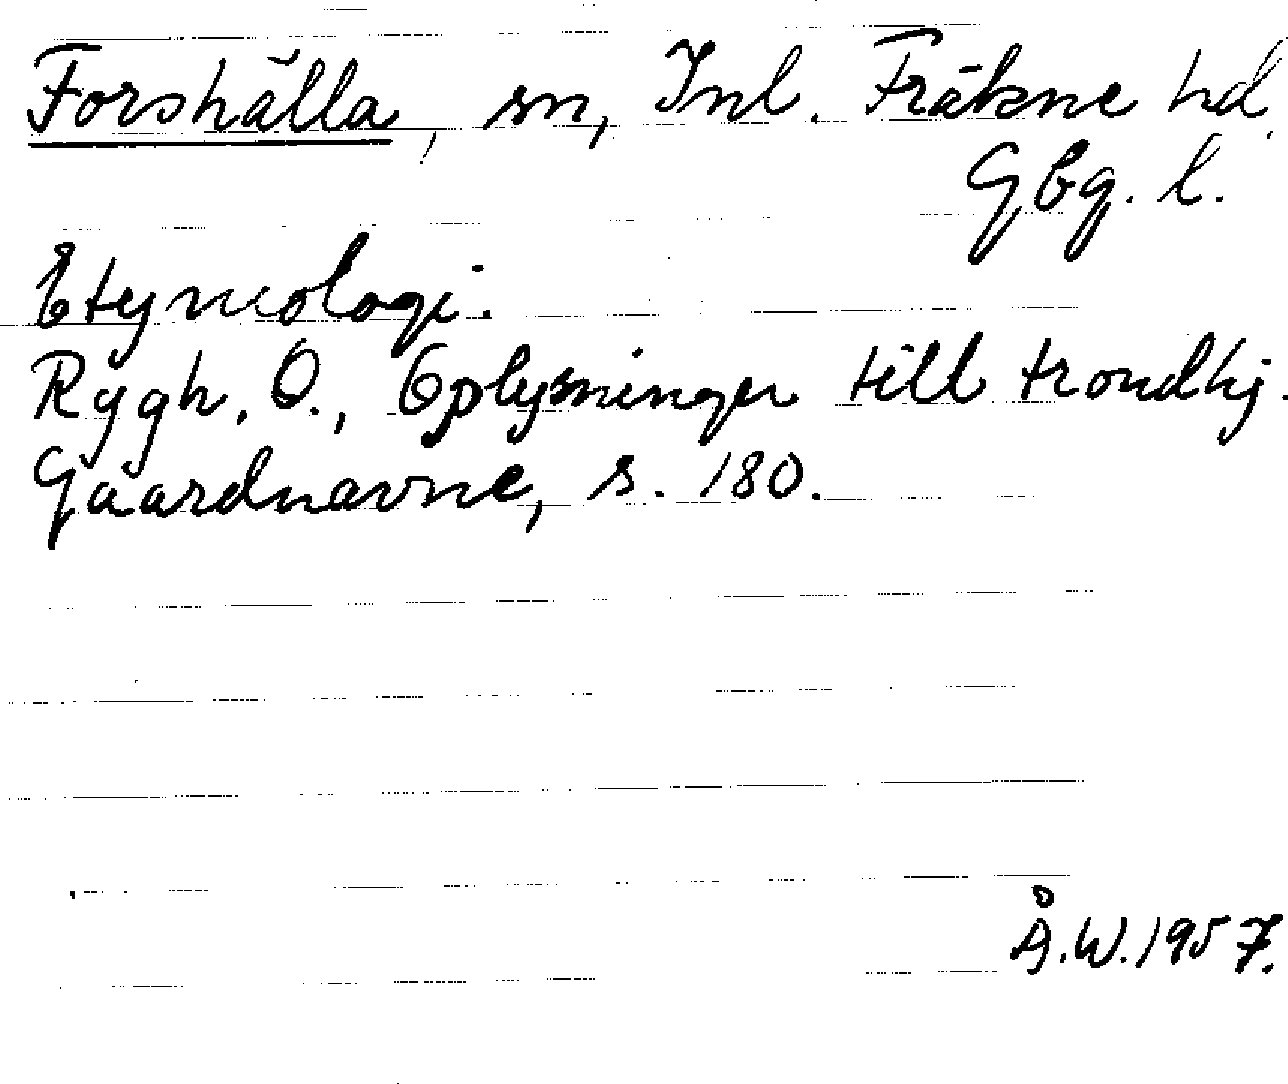 Forshälla, sn, Inl. Fräkne hd,
Gbg. l.
Etymologi.
Rygh, O., Oplysninger till trondhj.
Gaardnavne, s. 180.
Å.W. 1957.